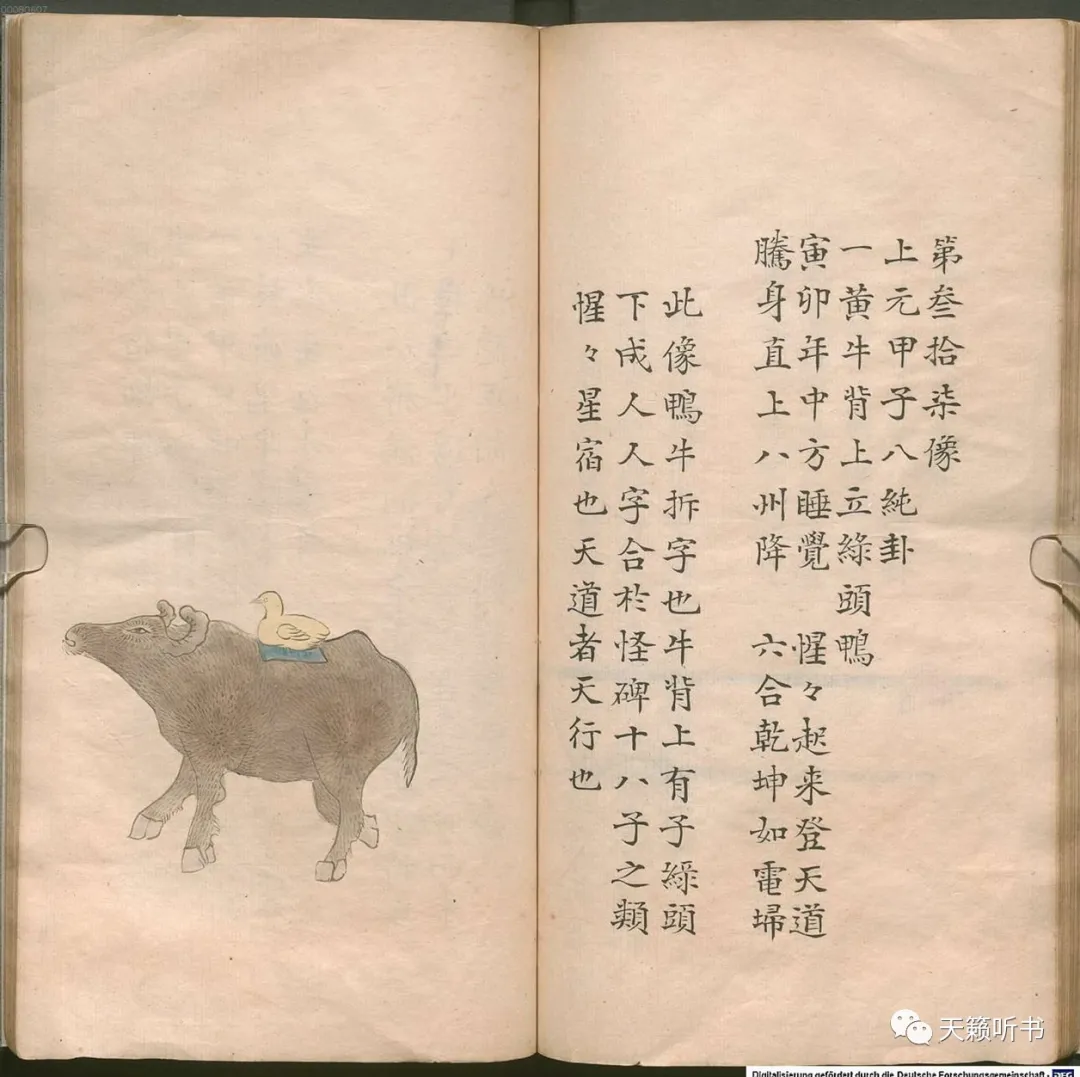 第叁拾柒像
上元甲子八純卦
一黃牛背上立綠頭鴨
寅卯年中方睡覺 惺々起来登天道
騰身直上八州降 六合乾坤如電埽
此像鴨牛拆字也牛背上有子綠頭
下成人人字合於怪碑十八子之類
惺々星宿也天道者天行也
天籁听书
Digitalisierung gefördert durch die Deutsche Forschungsgemeinschaft - DFG